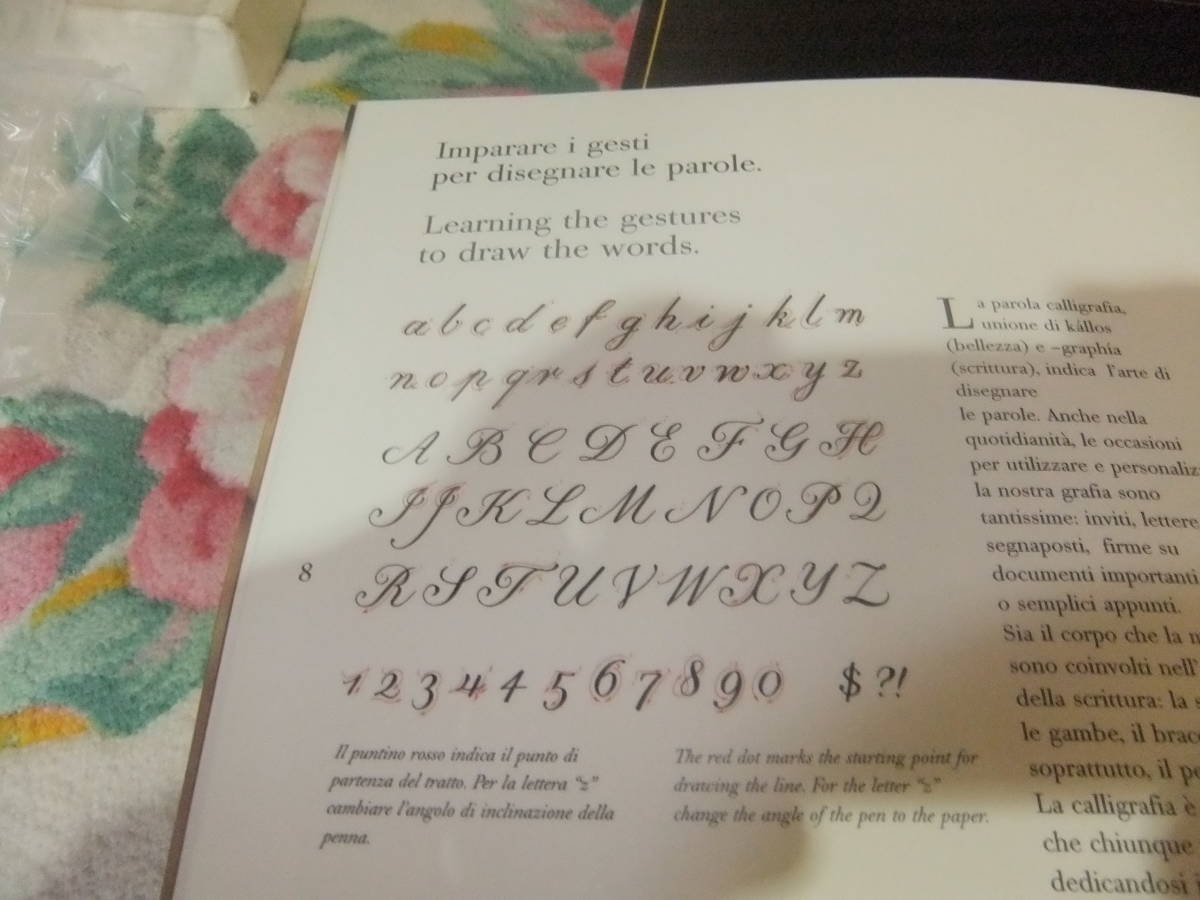 Imparare i gesti
per disegnare le parole.
Learning the gestures
to draw the words.
a b c d e f g h i j k l m
n o p q r s t u v w x y z
A B C D E F G H
I J K L M N O P Q
R S T U V W X Y Z
8
1 2 3 4 4 5 6 7 8 9 0 $ ?!
Il puntino rosso indica il punto di
partenza del tratto. Per la lettera “z”
cambiare l’angolo di inclinazione della
penna.
The red dot marks the starting point for
drawing the line. For the letter “z”
change the angle of the pen to the paper.
La parola calligrafia,
unione di kállos
(bellezza) e –graphía
(scrittura), indica l’arte di
disegnare
le parole. Anche nella
quotidianità, le occasioni
per utilizzare e personaliz
la nostra grafia sono
tantissime: inviti, lettere
segnaposti, firme su
documenti importanti
o semplici appunti.
Sia il corpo che la m
sono coinvolti nell’
della scrittura: la s
le gambe, il bracc
soprattutto, il po
La calligrafia è
che chiunque
dedicandosi i